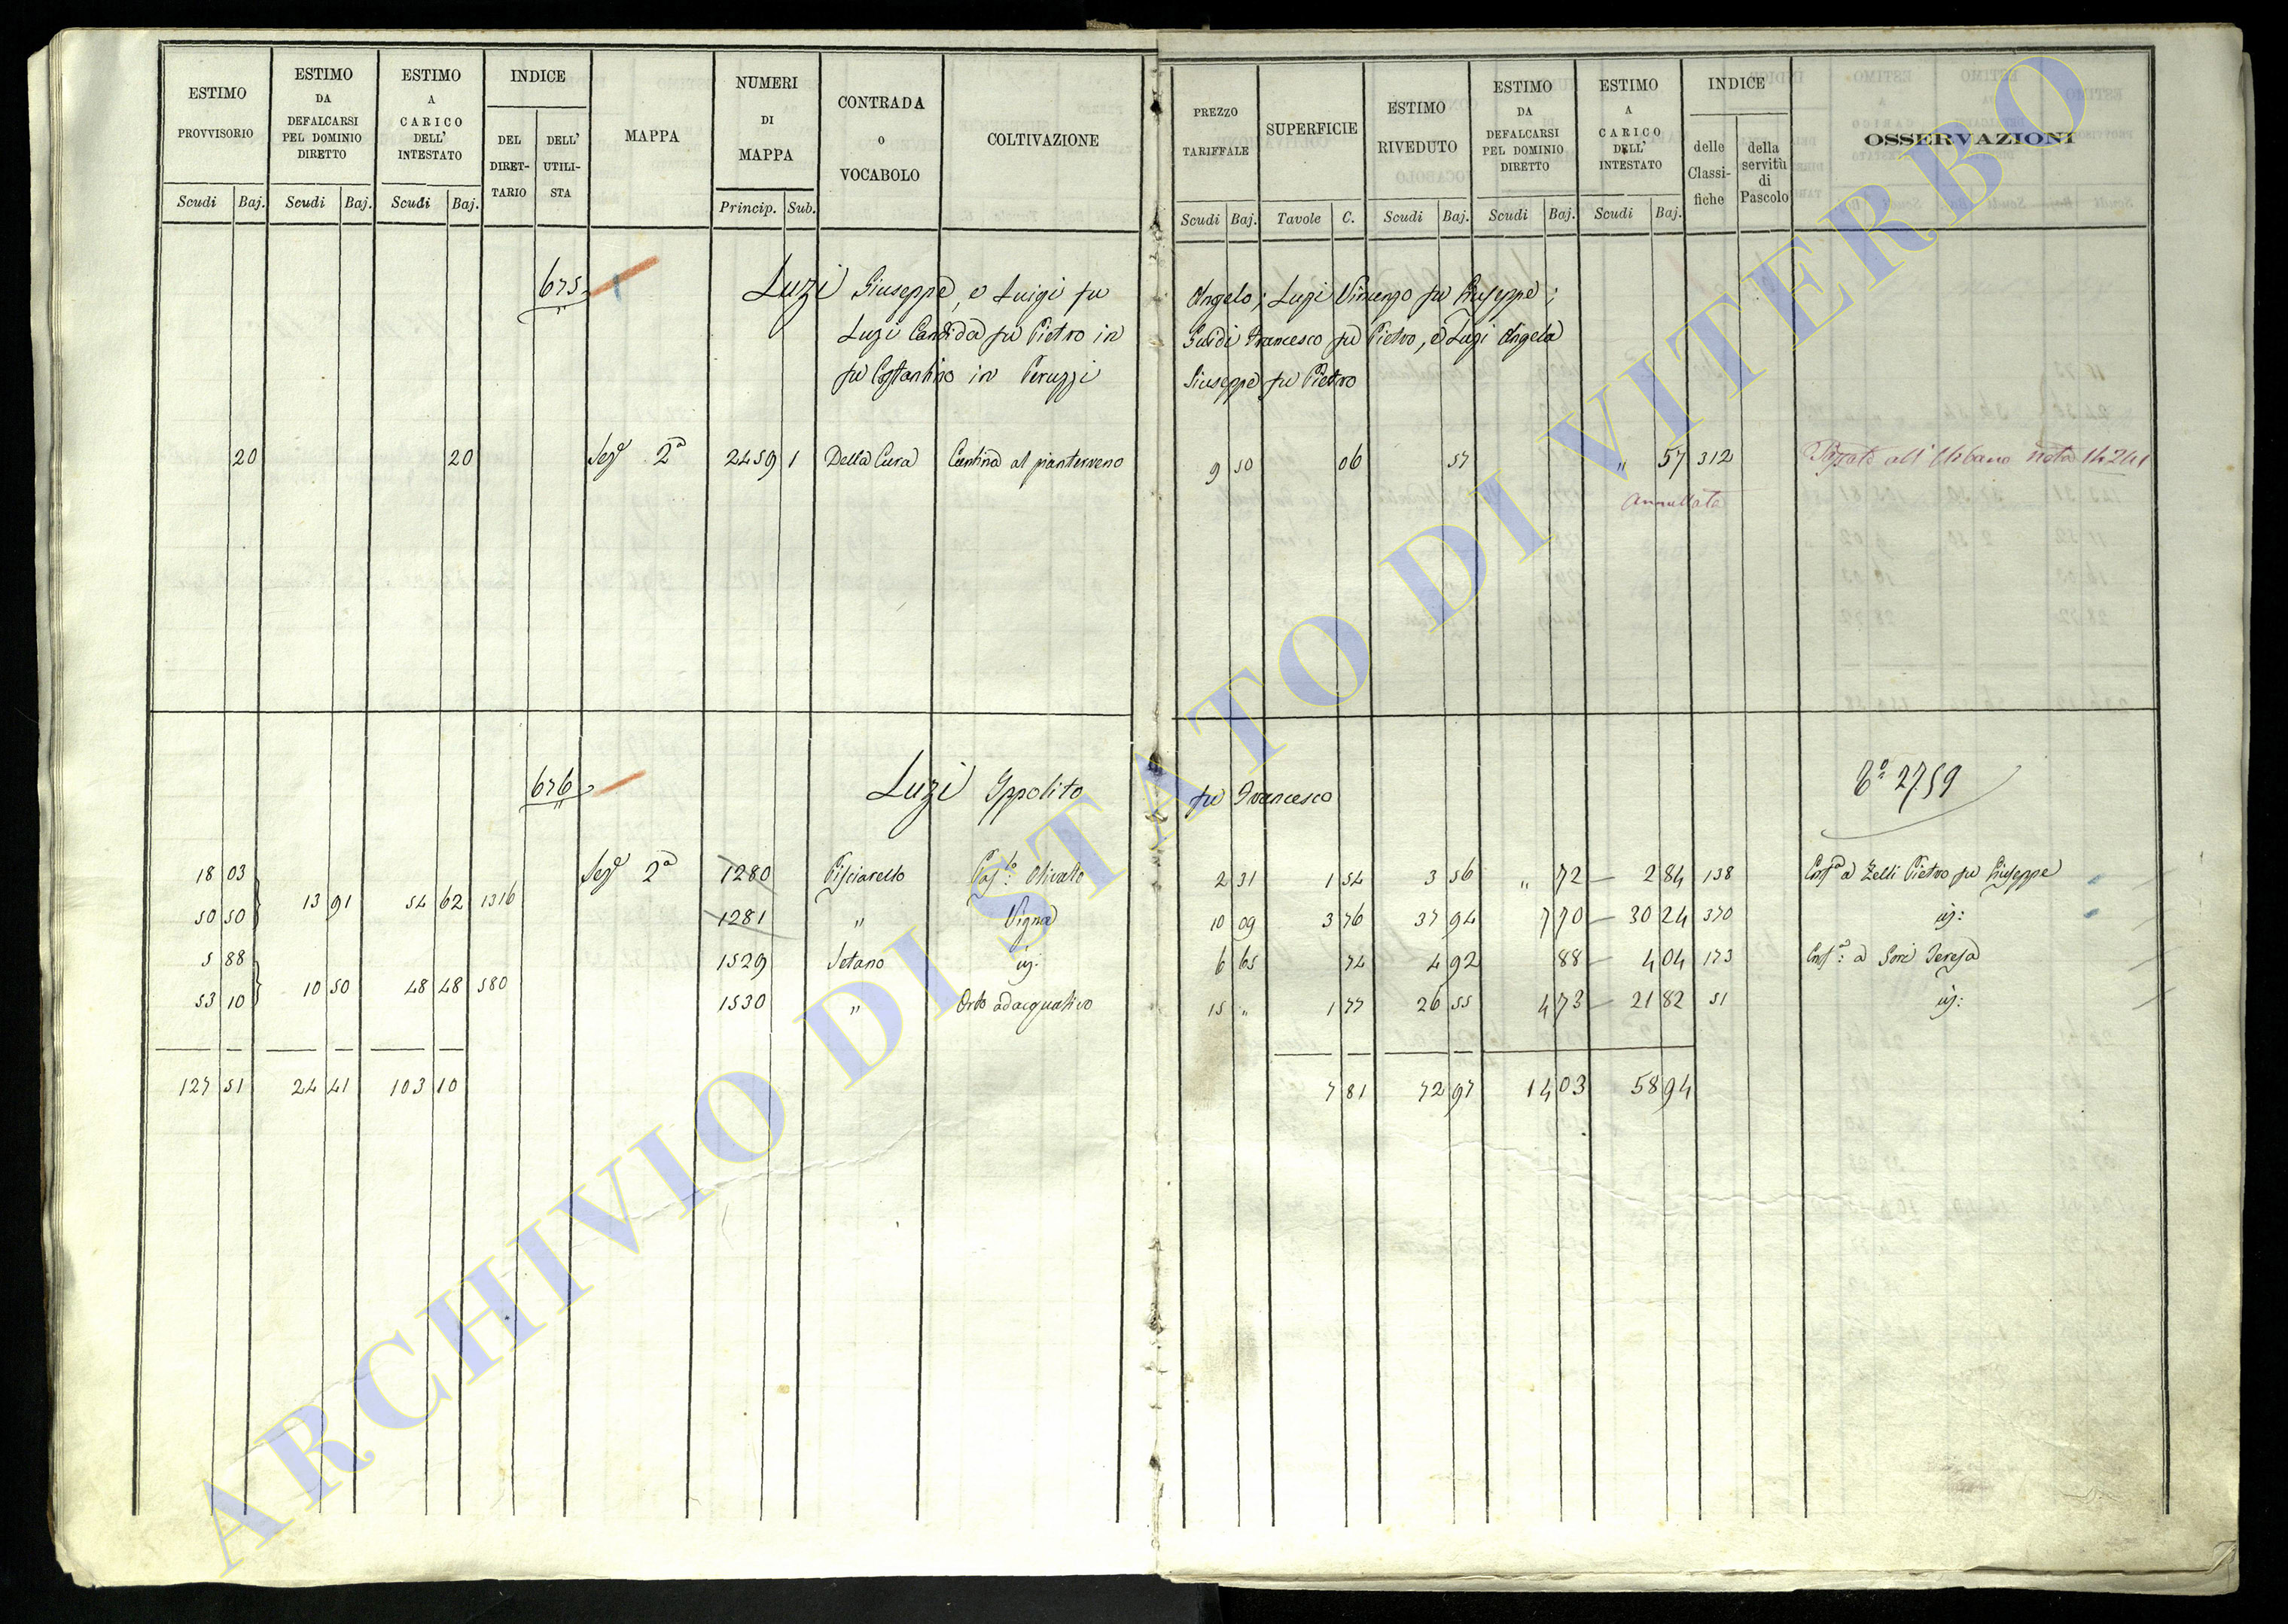 ESTIMO PROVVISORIO Scudi Baj.
ESTIMO DA DEFALCARSI PEL DOMINIO DIRETTO Scudi Baj.
ESTIMO A CARICO DELL' INTESTATO Scudi Baj.
INDICE DEL DIRET- TARIO DELL' UTILI- STA
MAPPA
NUMERI DI MAPPA Princip. Sub.
CONTRADA o VOCABOLO
COLTIVAZIONE
PREZZO TARIFFALE Scudi Baj.
SUPERFICIE Tavole C.
ESTIMO RIVEDUTO Scudi Baj.
ESTIMO DA DEFALCARSI PEL DOMINIO DIRETTO Scudi Baj.
ESTIMO A CARICO DELL' INTESTATO Scudi Baj.
INDICE delle Classi- fiche della servitù di Pascolo
OSSERVAZIONI
675 Luzi Giuseppe, e Luigi fu Angelo; Luzi Vincenzo fu Giuseppe;
Luzi Candida fu Pietro in Guidi Francesco fu Pietro, e Luzi Angela
fu Costantino in Peruzzi Giuseppe fu Pietro
20 20 Sez 2ª 2459 1 Della Cura Cantina al pianterreno 9 50 06 57 " 57 312 Passato all' Urbano nota 14241
annullata
676 Luzi Ippolito fu Francesco 2759
18 03 Sez 2ª 1280 Pisciarello Pasº: Olivato 2 31 1 54 3 56 " 72 — 2 84 138 a Zelli Pietro fu Giuseppe
13 91 54 62 1316
50 50 1281 " Vigna 10 09 3 76 37 94 7 70 — 30 24 370
5 88 1529 Setano 6 65 74 4 92 88 — 4 04 173 a Sori Teresa
10 50 48 48 580
53 10 1530 " Orto adacquativo 15 " 1 77 26 55 4 73 — 21 82 51
127 51 24 41 103 10 7 81 72 97 14 03 58 94
ARCHIVIO DI STATO DI VITERBO